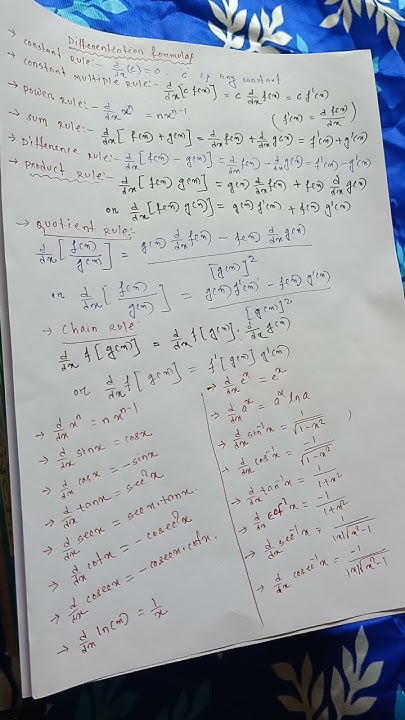 Differentiation formulas
→ constant rule:- d/dx (c) = 0, 'c' is any constant
→ constant multiple rule:- d/dx [c f(x)] = c d/dx f(x) = c f'(x)
→ power rule:- d/dx xⁿ = nxⁿ⁻¹ (f'(x) = d f(x)/dx)
→ sum rule:- d/dx [f(x) + g(x)] = d/dx f(x) + d/dx g(x) = f'(x) + g'(x)
→ Difference rule:- d/dx [f(x) - g(x)] = d/dx f(x) - d/dx g(x) = f'(x) - g'(x)
→ Product Rule:-
d/dx [f(x) g(x)] = g(x) d/dx f(x) + f(x) d/dx g(x)
or d/dx [f(x) g(x)] = g(x) f'(x) + f(x) g'(x)
→ Quotient Rule:-
d/dx [f(x)/g(x)] = g(x) d/dx f(x) - f(x) d/dx g(x) / [g(x)]²
or d/dx [f(x)/g(x)] = g(x) f'(x) - f(x) g'(x) / [g(x)]²
→ Chain Rule:
d/dx f[g(x)] = d/dx f[g(x)] · d/dx g(x)
or d/dx f[g(x)] = f'[g(x)] g'(x)
→ d/dx xⁿ = nxⁿ⁻¹
→ d/dx sinx = cosx
→ d/dx cosx = -sinx
→ d/dx tanx = sec²x
→ d/dx secx = secx.tanx.
→ d/dx cotx = -cosec²x
→ d/dx cosecx = -cosecx.cotx.
→ d/dx ln(x) = 1/x
→ d/dx eˣ = eˣ
→ d/dx aˣ = aˣ ln a
→ d/dx sin⁻¹x = 1/√(1-x²)
→ d/dx cos⁻¹x = -1/√(1-x²)
→ d/dx tan⁻¹x = 1/(1+x²)
→ d/dx cot⁻¹x = -1/(1+x²)
→ d/dx sec⁻¹x = 1/(|x|√(x²-1))
→ d/dx cosec⁻¹x = -1/(|x|√(x²-1))